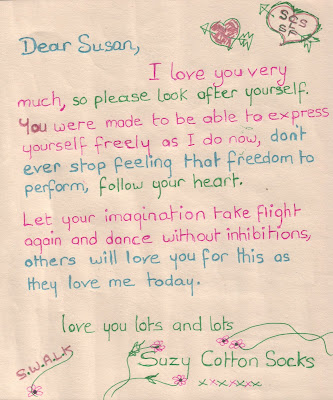 S C S
L
S P
Dear Susan,
I love you very
much, so please look after yourself.
You were made to be able to express
yourself freely as I do now, don't
ever stop feeling that freedom to
perform, follow your heart.
Let your imagination take flight
again and dance without inhibitions,
others will love you for this as
they love me today.
love you lots and lots
S.W.A.L.K
Suzy Cotton Socks
xxxxxxx